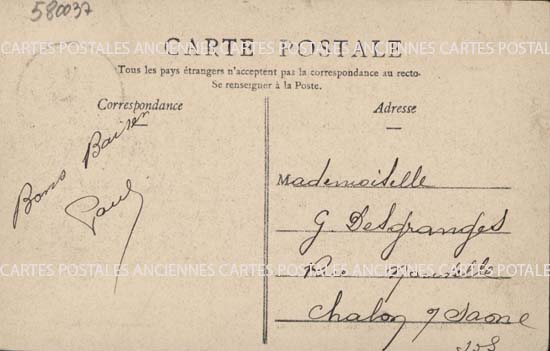 580037
CARTE POSTALE
CARTES POSTALES ANCIENNES CARTES POSTALES ANCIENNES CARTES POSTALES
Tous les pays étrangers n'acceptent pas la correspondance au recto-
Se renseigner à la Poste.
Correspondance
Bons Baisers
Paul
Adresse
Mademoiselle
G. Desgranges
Rue
CARTES POSTALES ANCIENNES CARTES POSTALES ANCIENNES CARTES POSTALES
Chalon s/ Saone